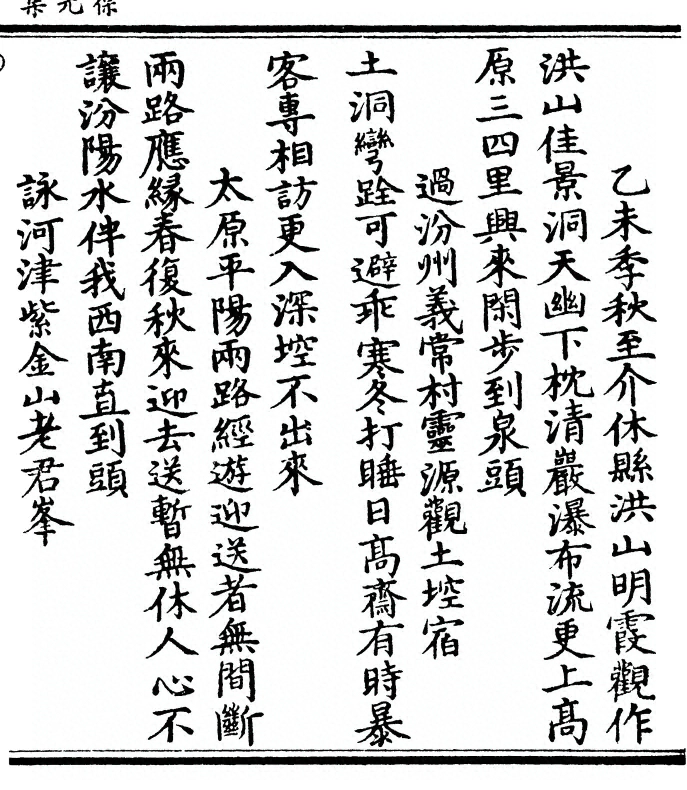 葆光集
乙未季秋至介休縣洪山明霞觀作
洪山佳景洞天幽下枕清巖瀑布流更上高
原三四里興來閑步到泉頭
過汾州義常村靈源觀土埪宿
土洞彎跧可避乖寒冬打睡日高齋有時暴
客專相訪更入深埪不出來
太原平陽兩路經遊迎送者無間斷
兩路應緣春復秋來迎去送暫無休人心不
讓汾陽水伴我西南直到頭
詠河津紫金山老君峯